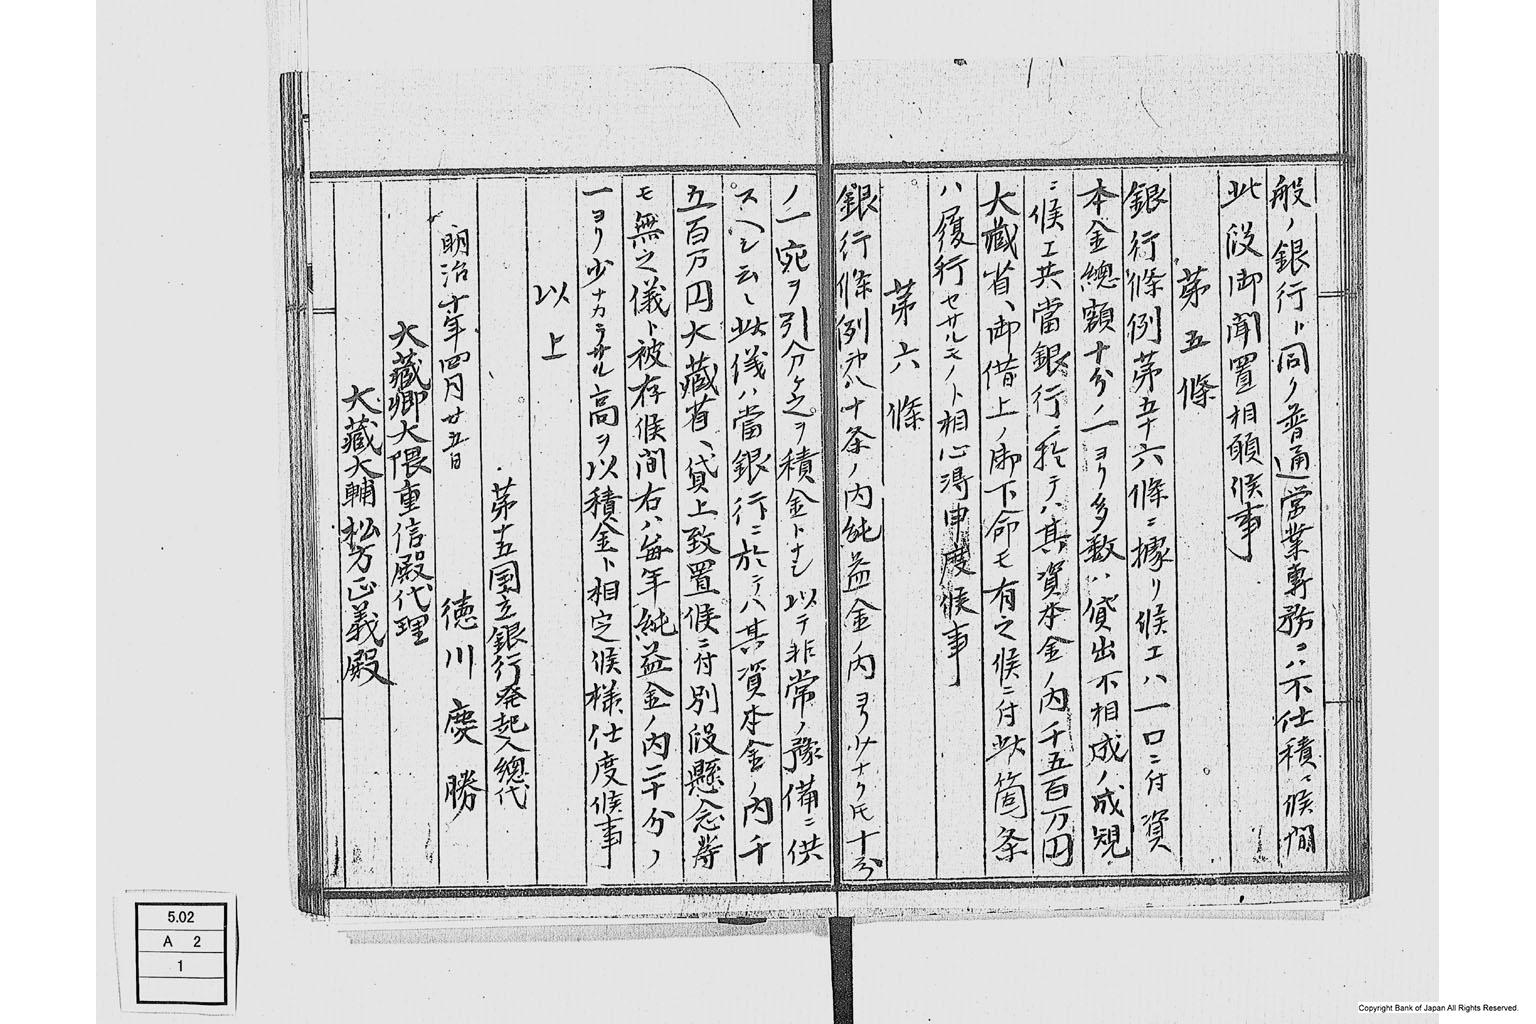 般ノ銀行ト同ク普通常業専務ニハ不仕積ニ候間
此段御聞置相願候事
第五條
銀行條例第五十六條ニ據リ候エハ一口ニ付資
本金總額十分ノ一ヨリ多数ハ貸出不相成ノ成規
ニ候エ共當銀行ニ於テハ其資本金ノ内千五百万円
大藏省ヘ御借上ノ御下命モ有之候ニ付此箇条
ハ履行セサルモノト相心得申度候事
第六條
銀行條例第八十条ノ内純益金ノ内ヨリ少ナクモ十分
ノ一宛ヲ引分ケ之ヲ積金トナシ以テ非常ノ豫備ニ供
スヘシ云々此儀ハ當銀行ニ於テハ其資本金ノ内千
五百万円大藏省ヘ貸上致置候ニ付別段懸念等
モ無之儀ト被存候間右ハ毎年純益金ノ内二十分ノ
一ヨリ少ナカラサル高ヲ以積金ト相定候様仕度候事
以上
第十五国立銀行発起人總代
明治十年四月廿五日 徳川慶勝
大藏卿大隈重信殿代理
大藏大輔松方正義殿
5.02
A 2
1
Copyright Bank of Japan All Rights Reserved.